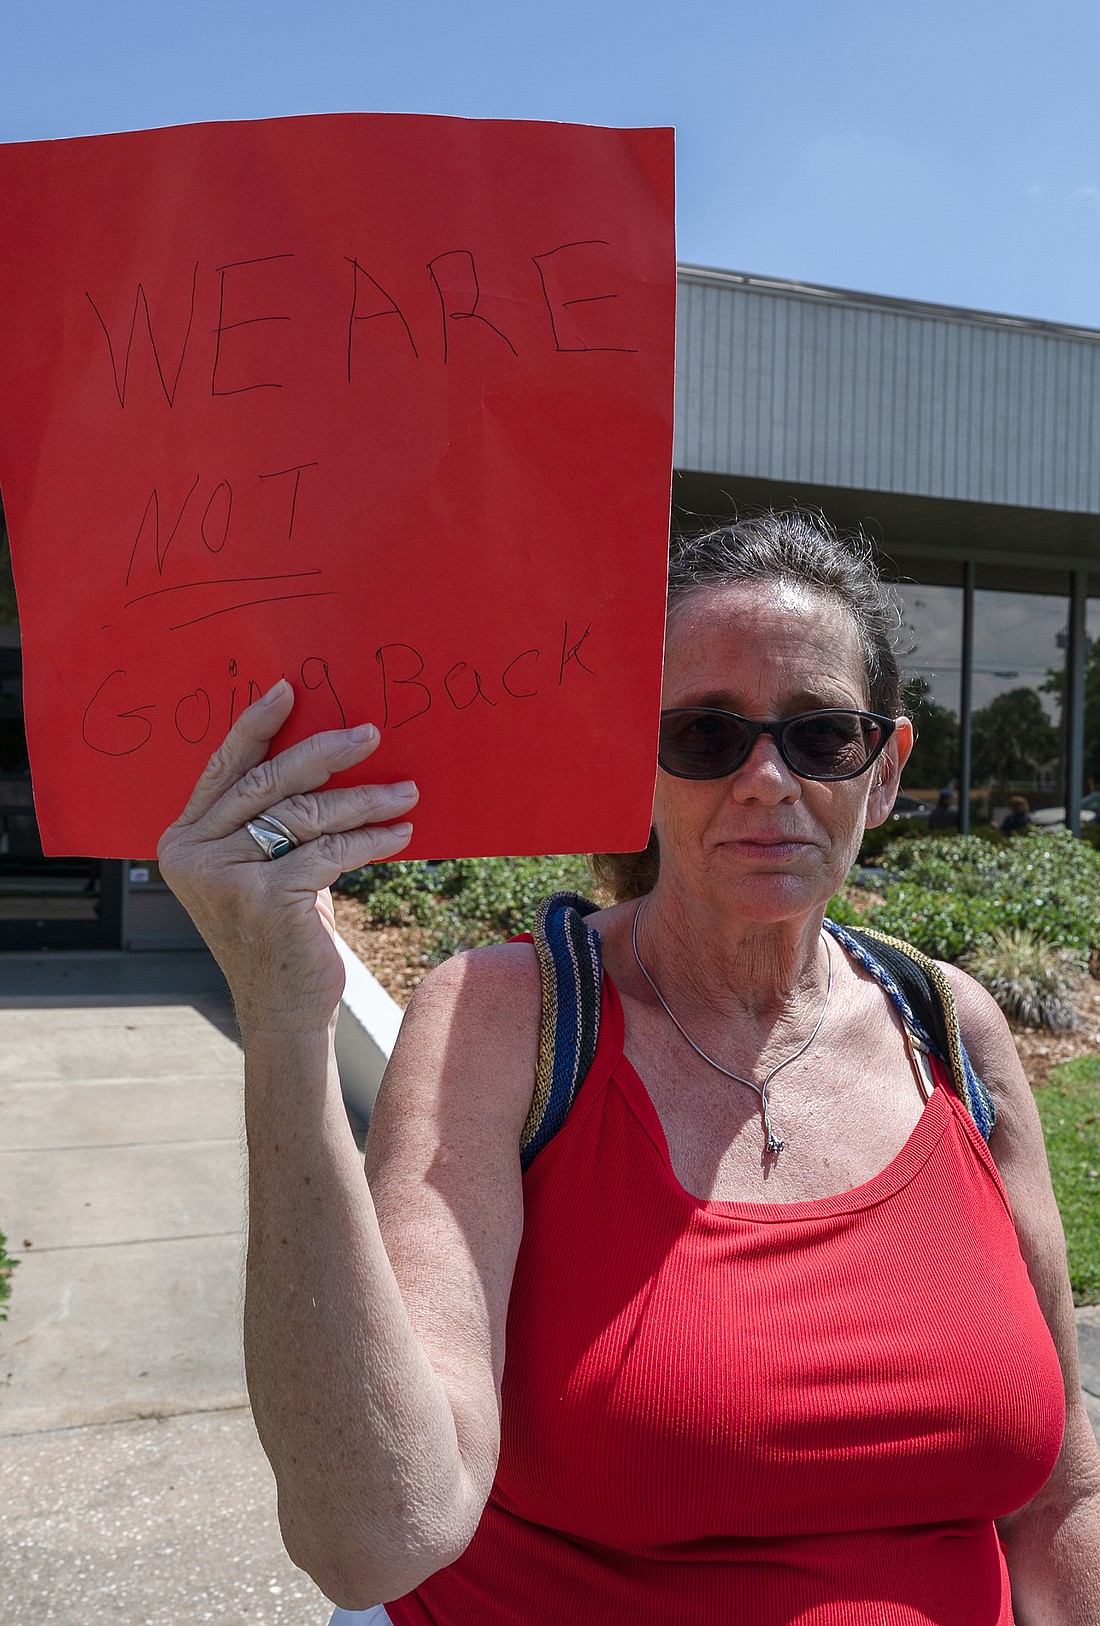 WE ARE
NOT
Going Back